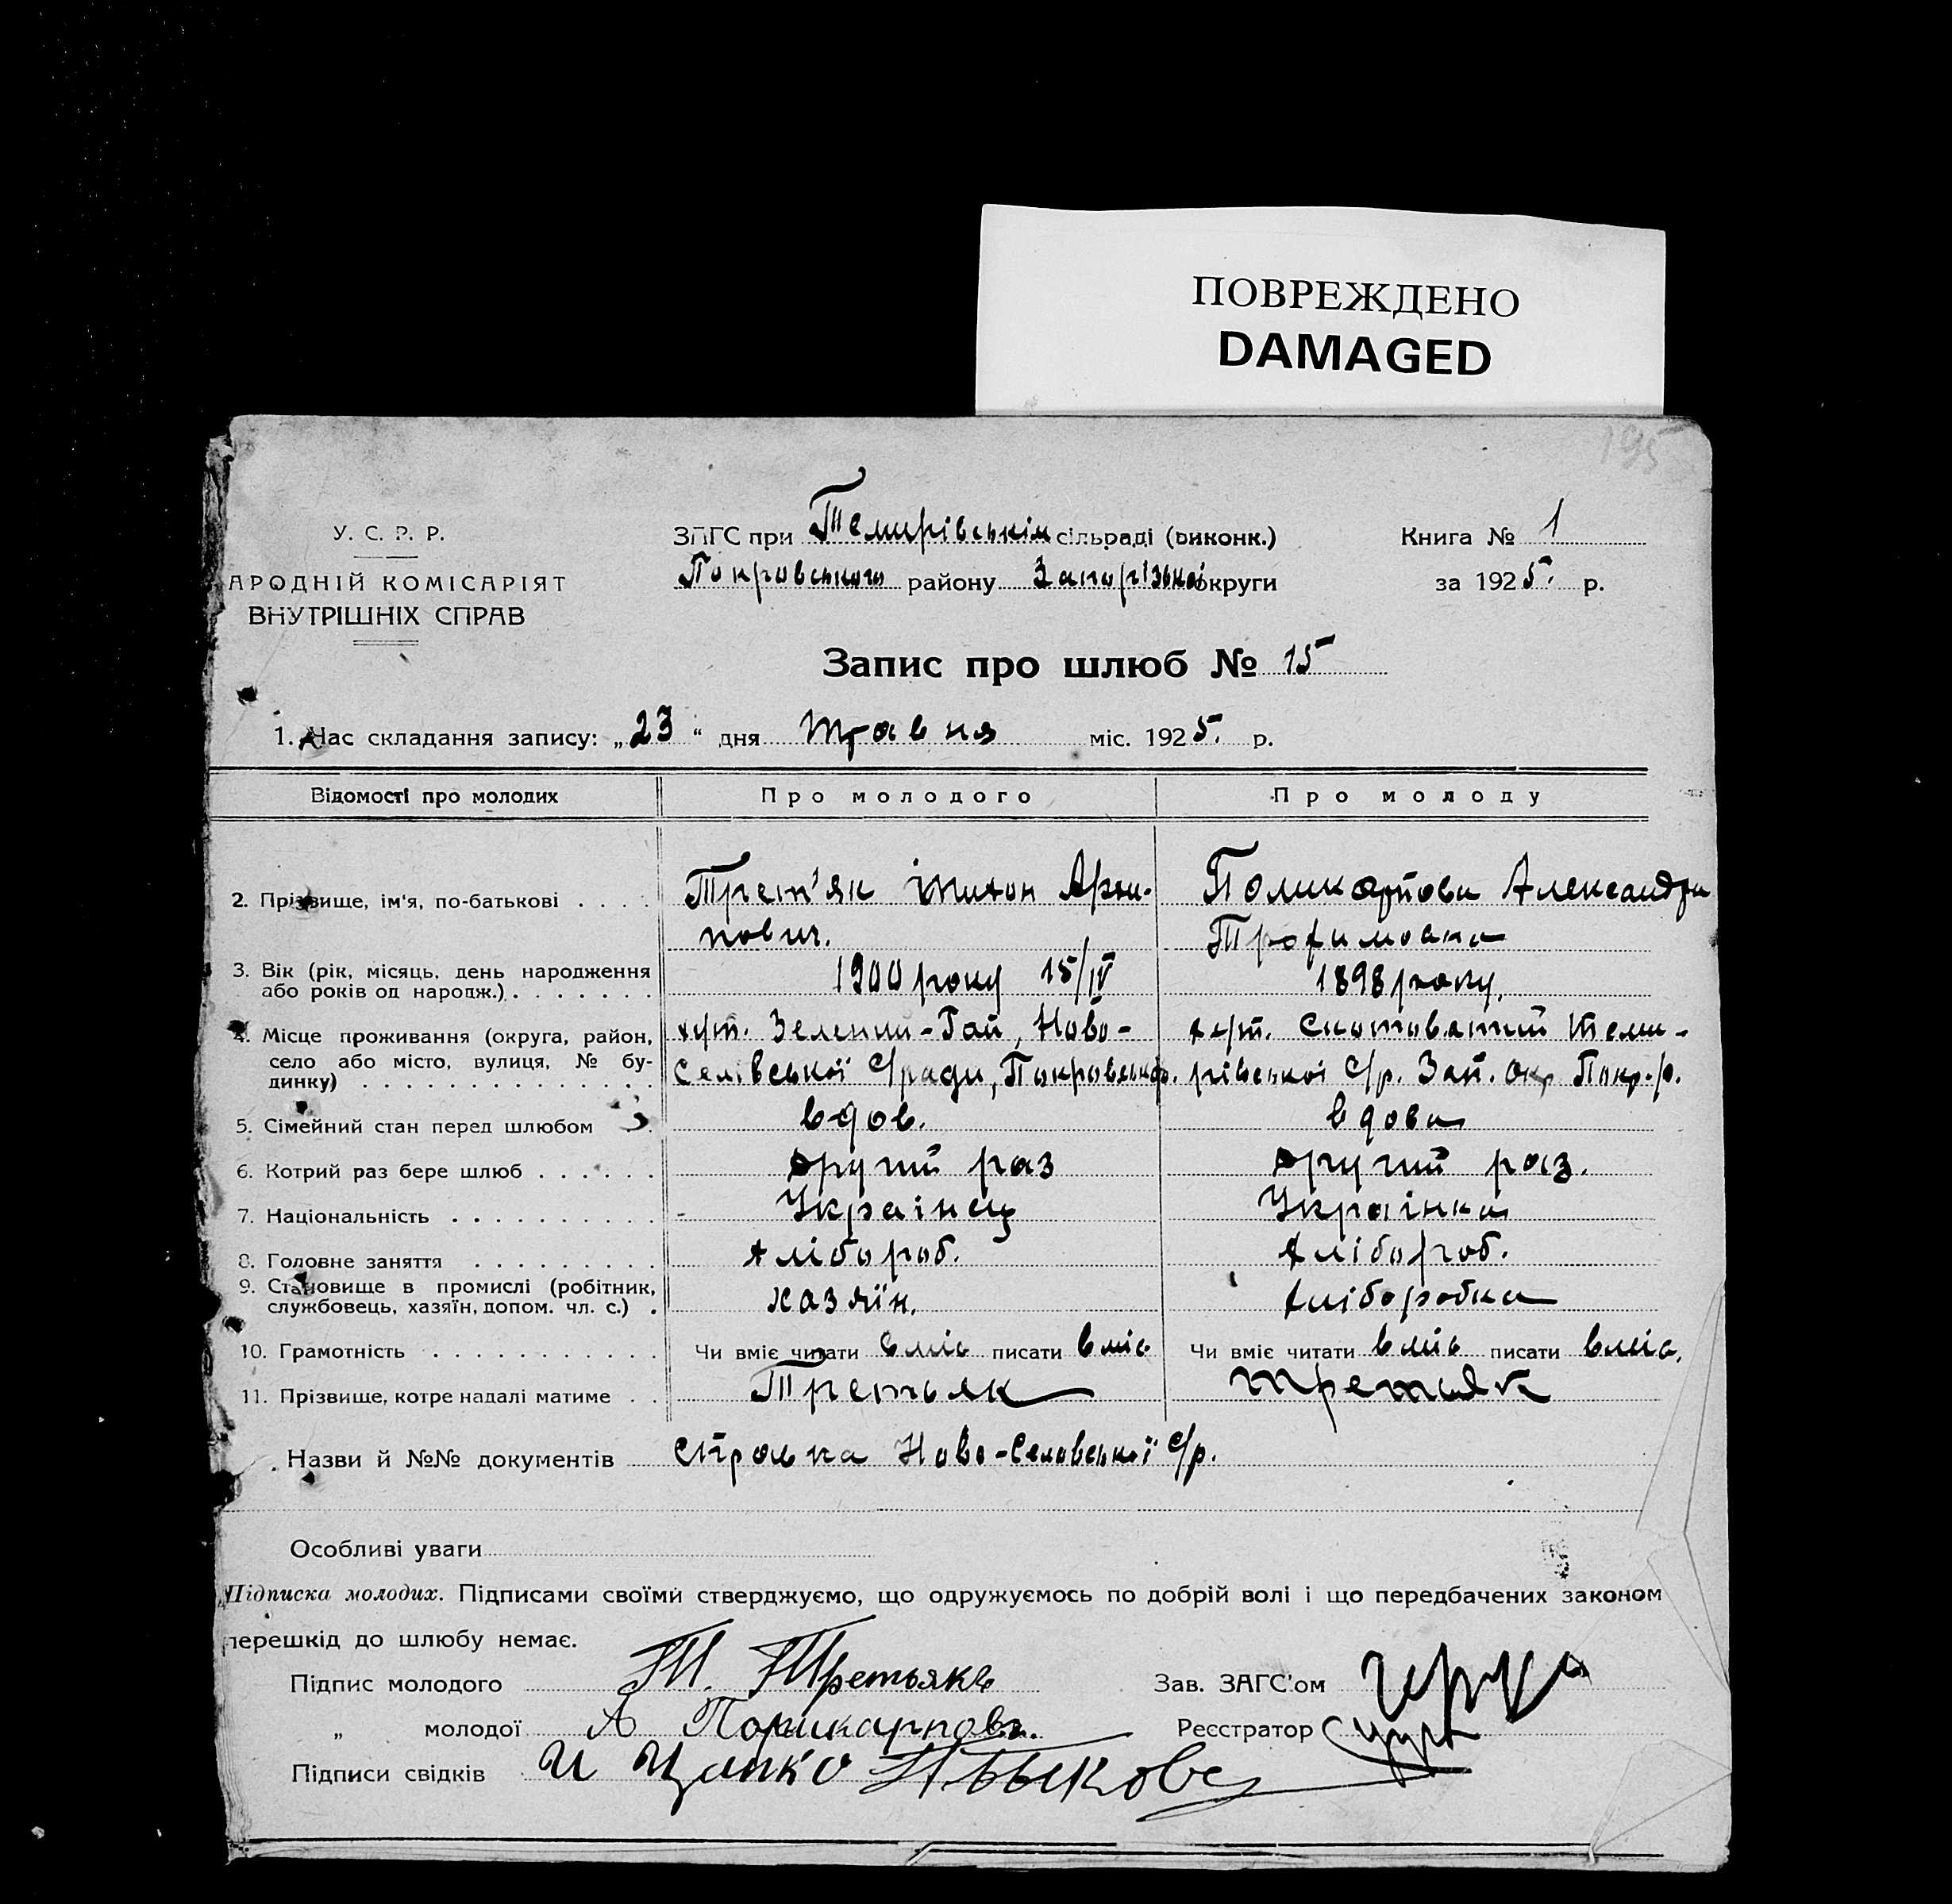 ПОВРЕЖДЕНО
DAMAGED
195
У. С. Р. Р.
АРОДНІЙ КОМІСАРІЯТ
ВНУТРІШНІХ СПРАВ
ЗАГС при Темирівській сільраді (виконк.)
Покровського району Запорізької округи
Книга № 1
за 1925. р.
Запис про шлюб № 15
1. Час складання запису: „23“ дня травня міс. 1925. р.
Відомості про молодих Про молодого Про молоду
2. Прізвище, ім'я, по-батькові . . . . Трет'як Тихон Архи- Поликарпова Александра
пович. Трофимовна
3. Вік (рік, місяць, день народження
або років од народж.) . . . . . . . 1900 року 15/IV 1898 року.
4. Місце проживання (округа, район, хут. Зелений-Гай, Ново- хут. Скотоватий Теми-
село або місто, вулиця, № бу- Селівської С/ради, Покровськ. р. рівської С/р. Зап. окр Покр. р.
динку) . . . . . . . . . . . . . .
5. Сімейний стан перед шлюбом вдов. вдова
6. Котрий раз бере шлюб . . . . . . другий раз другий раз.
7. Національність . . . . . . . . . . Українец Українка
8. Головне заняття . . . . . . . . . хлібороб. хлібороб.
9. Становище в промислі (робітник,
службовець, хазяїн, допом. чл. с.) . хазяїн. хліборобка
10. Грамотність . . . . . . . . . . . Чи вміє читати вміє писати вміє Чи вміє читати вміє писати вміє.
11. Прізвище, котре надалі матиме . . Третьяк Третьяк
Назви й №№ документів Ново-Селовської С/р.
Особливі уваги
Підписка молодих. Підписами своїми стверджуємо, що одружуємось по добрій волі і що передбачених законом
перешкід до шлюбу немає.
Підпис молодого Т. Третьякъ Зав. ЗАГС'ом
„ молодої А Поликарпова. Реєстратор
Підписи свідків И Цапко Н Быкове